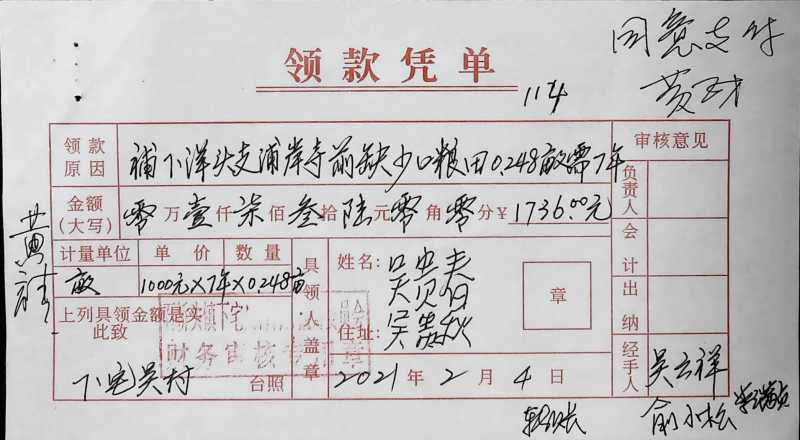 同意支付
领款凭单
11#
领款原因 補下洋头支浦岸寺前缺少口粮田0.248亩需7年
审核意见
金额(大写) 零万壹仟柒佰叁拾陆元零角零分¥1736.00元
负责人
计量单位 单价 数量
亩 1000元×7年×0.248亩
具领人盖章
姓名: 吴贵春
章
会计
上列具领金额是实
此致
住址: 吴贵秋
出纳
财务审核专用章
下宅吴村 台照
2021年2月4日
经手人
吴云祥
俞小松